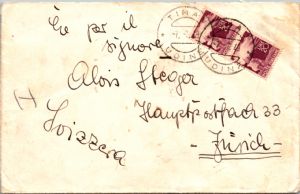 per il
signore
Alois Steger
Hauptpostfach 33
Zürich
Svizzera